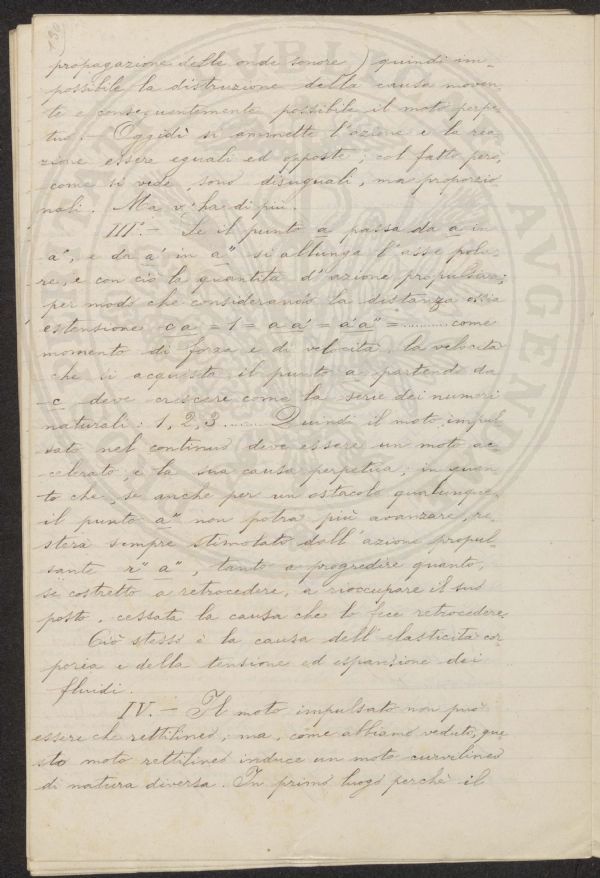 130
propagazione delle onde sonore) quindi im-
possibile la distruzione della causa moven-
te e conseguentemente possibile il moto perpe-
tuo. - Oggidì si ammette l'azione e la rea-
zione essere eguali ed opposte; col fatto però,
come si vede, sono disuguali, ma proporzio-
nali. Ma v'ha di più.
III°. - Se il punto a passa da a in
a', e da a' in a" si allunga l'asse pola-
re, e con ciò la quantità d'azione propulsiva;
per modo che considerando la distanza ossia
estensione c a = 1 = a a' = a' a" = ......... come
momento di forza e di velocità, la velocità
che si acquista il punto a partendo da
c deve crescere come la serie dei numeri
naturali: 1, 2, 3 ........ Quindi il moto impul-
sato nel continuo deve essere un moto ac-
celerato, e la sua causa perpetua; in quan-
to che, se anche per un ostacolo qualunque,
il punto a" non potrà più avanzare, re-
sterà sempre stimolato dall'azione propul-
sante r" a", tanto a progredire quanto,
se costretto a retrocedere, a rioccupare il suo
posto, cessata la causa che lo fece retrocedere.
Ciò stesso è la causa dell'elasticità cor-
porea e della tensione ed espansione dei
fluidi.
IV. - Il moto impulsato non può
essere che rettilineo; ma, come abbiamo veduto, que-
sto moto rettilineo induce un moto curvilineo
di natura diversa. In primo luogo perchè il